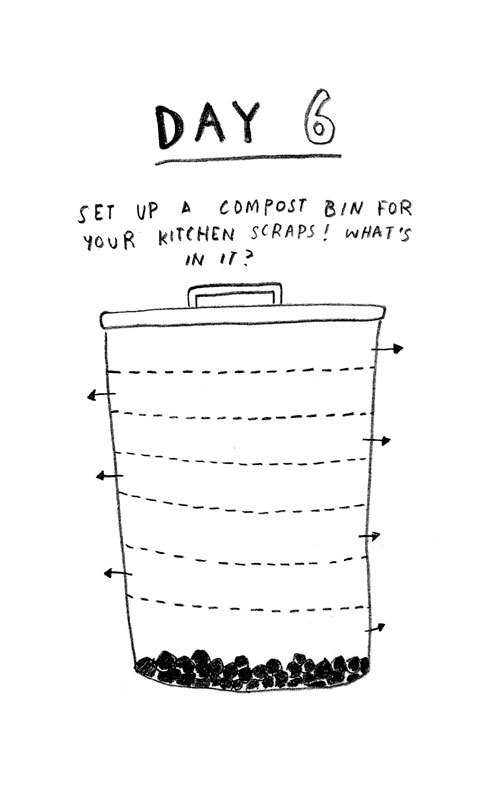 DAY 6
SET UP A COMPOST BIN FOR
YOUR KITCHEN SCRAPS! WHAT'S
IN IT?